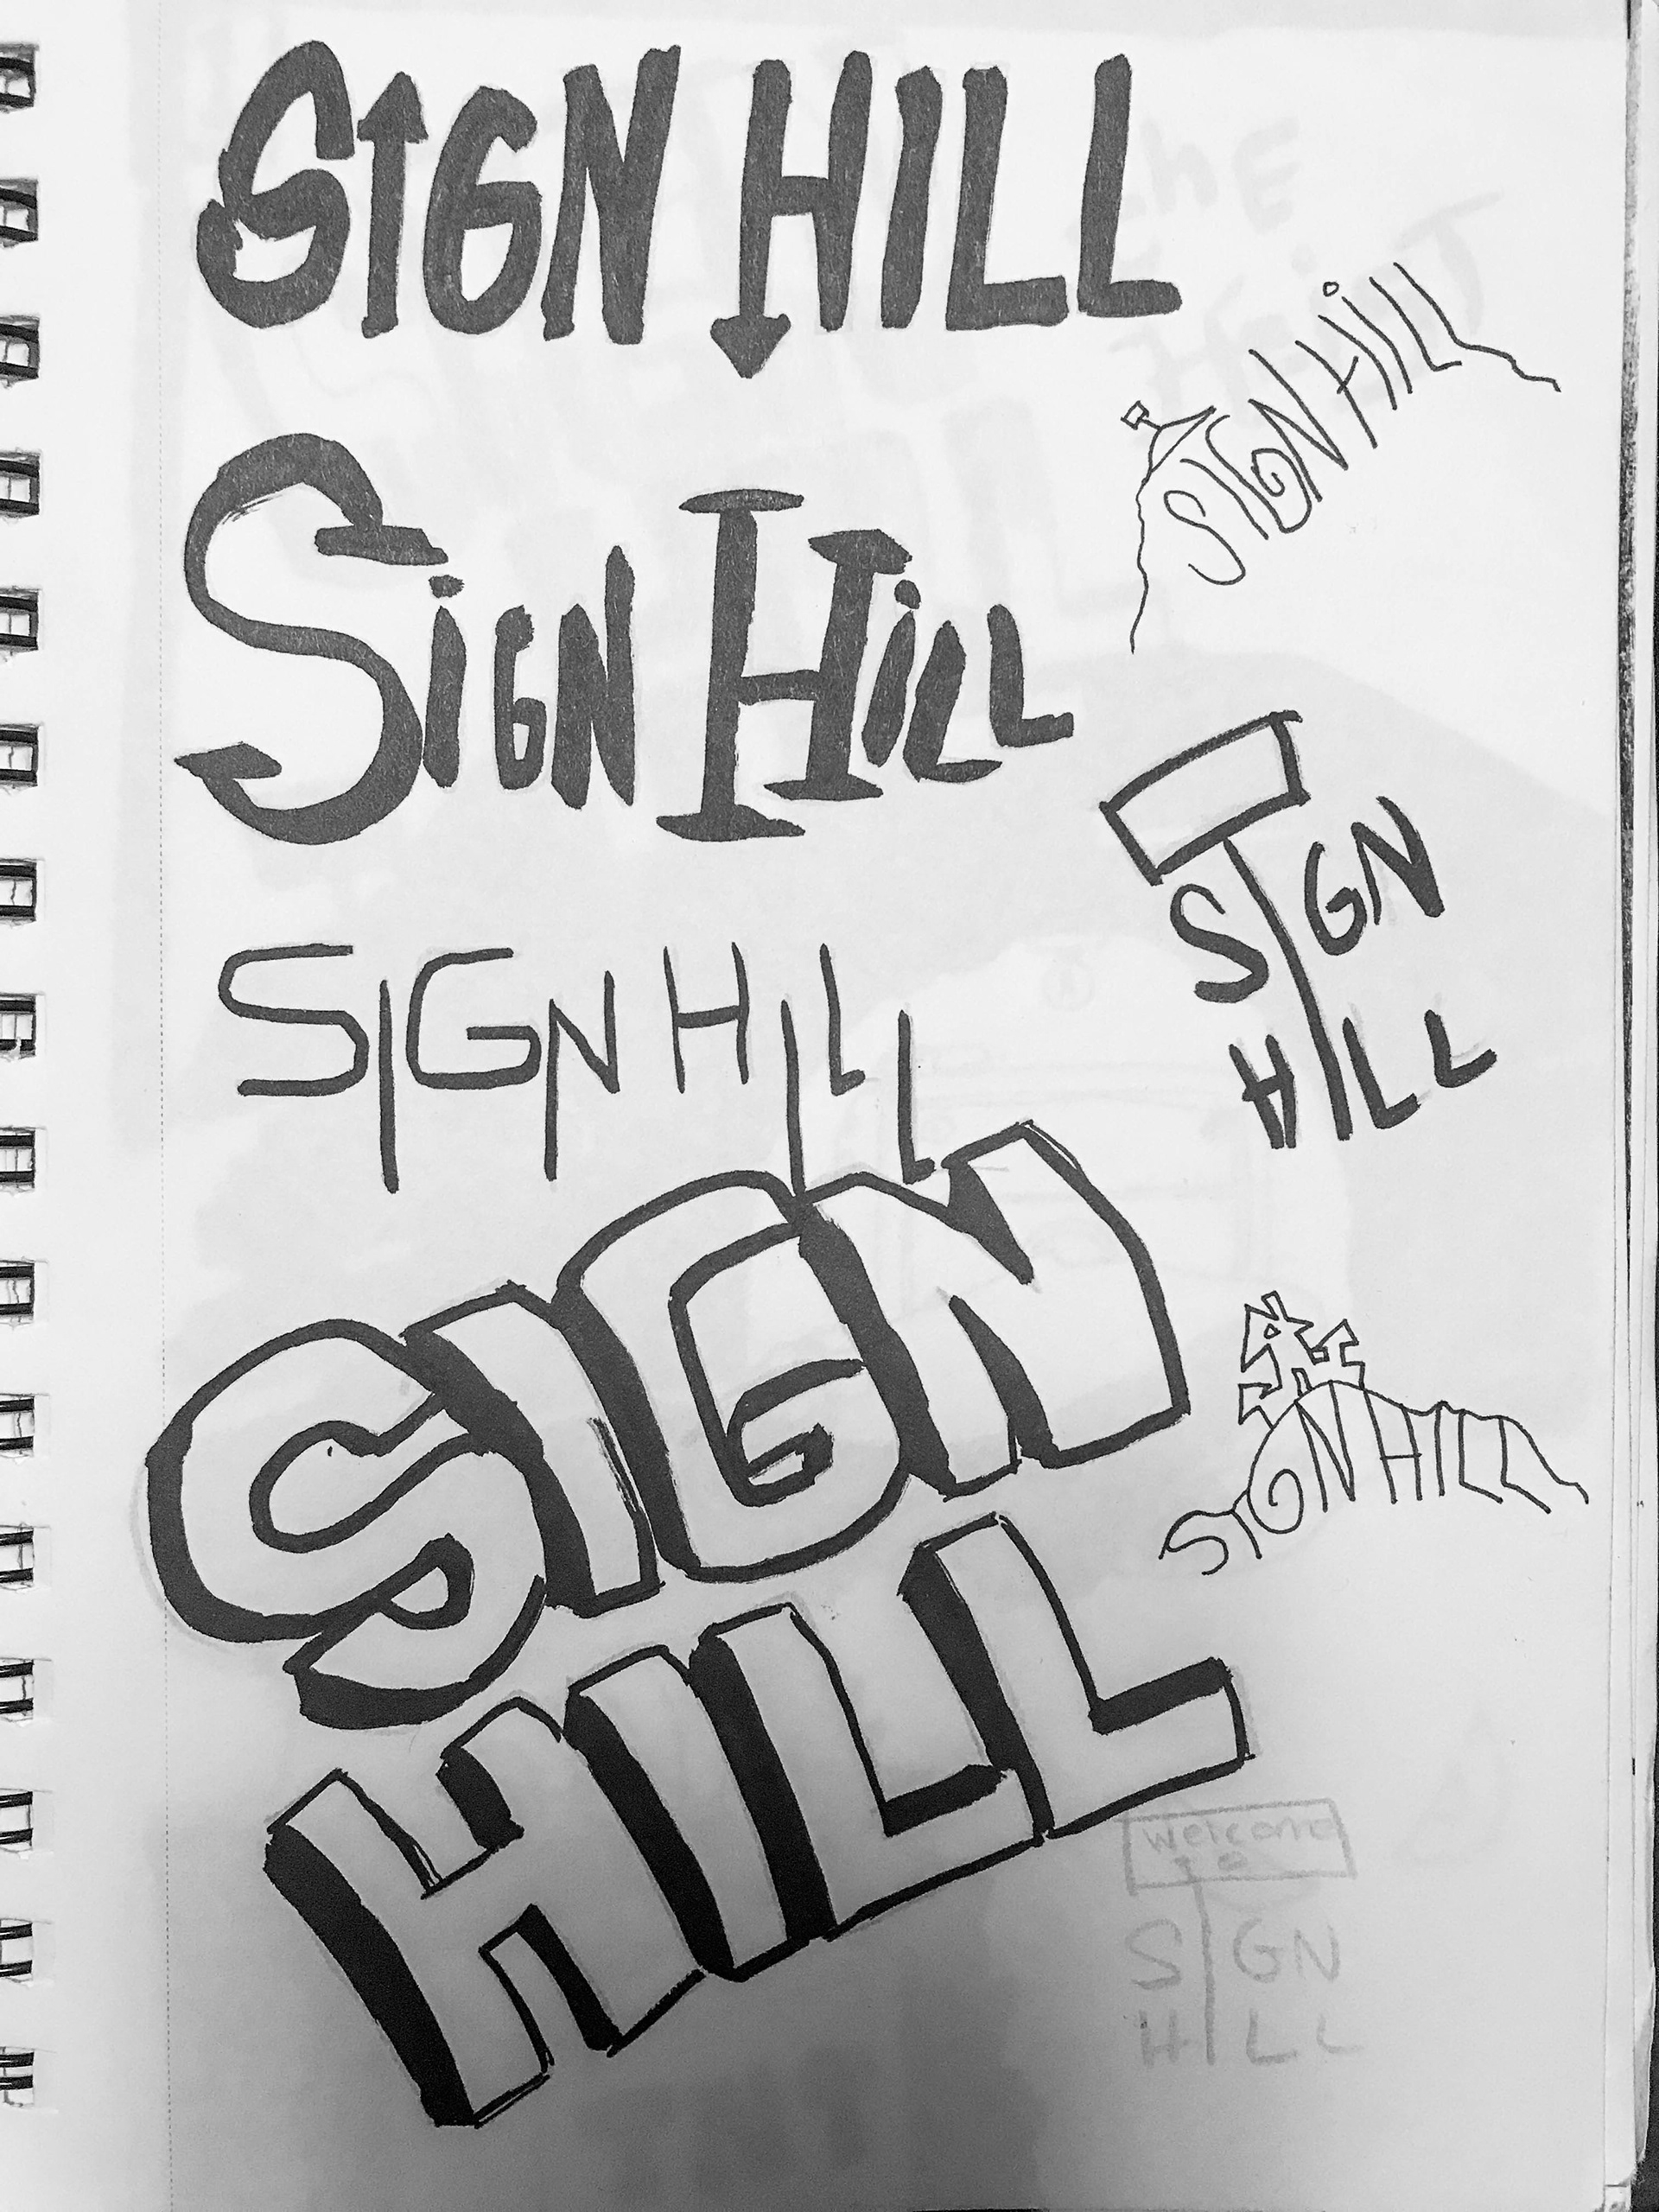 SIGN HILL
SIGN HILL
SiGN HiLL
SIGN
HILL
SIGN HILL
SIGN HILL
SIGN
HILL
Welcome
To
SIGN
HILL